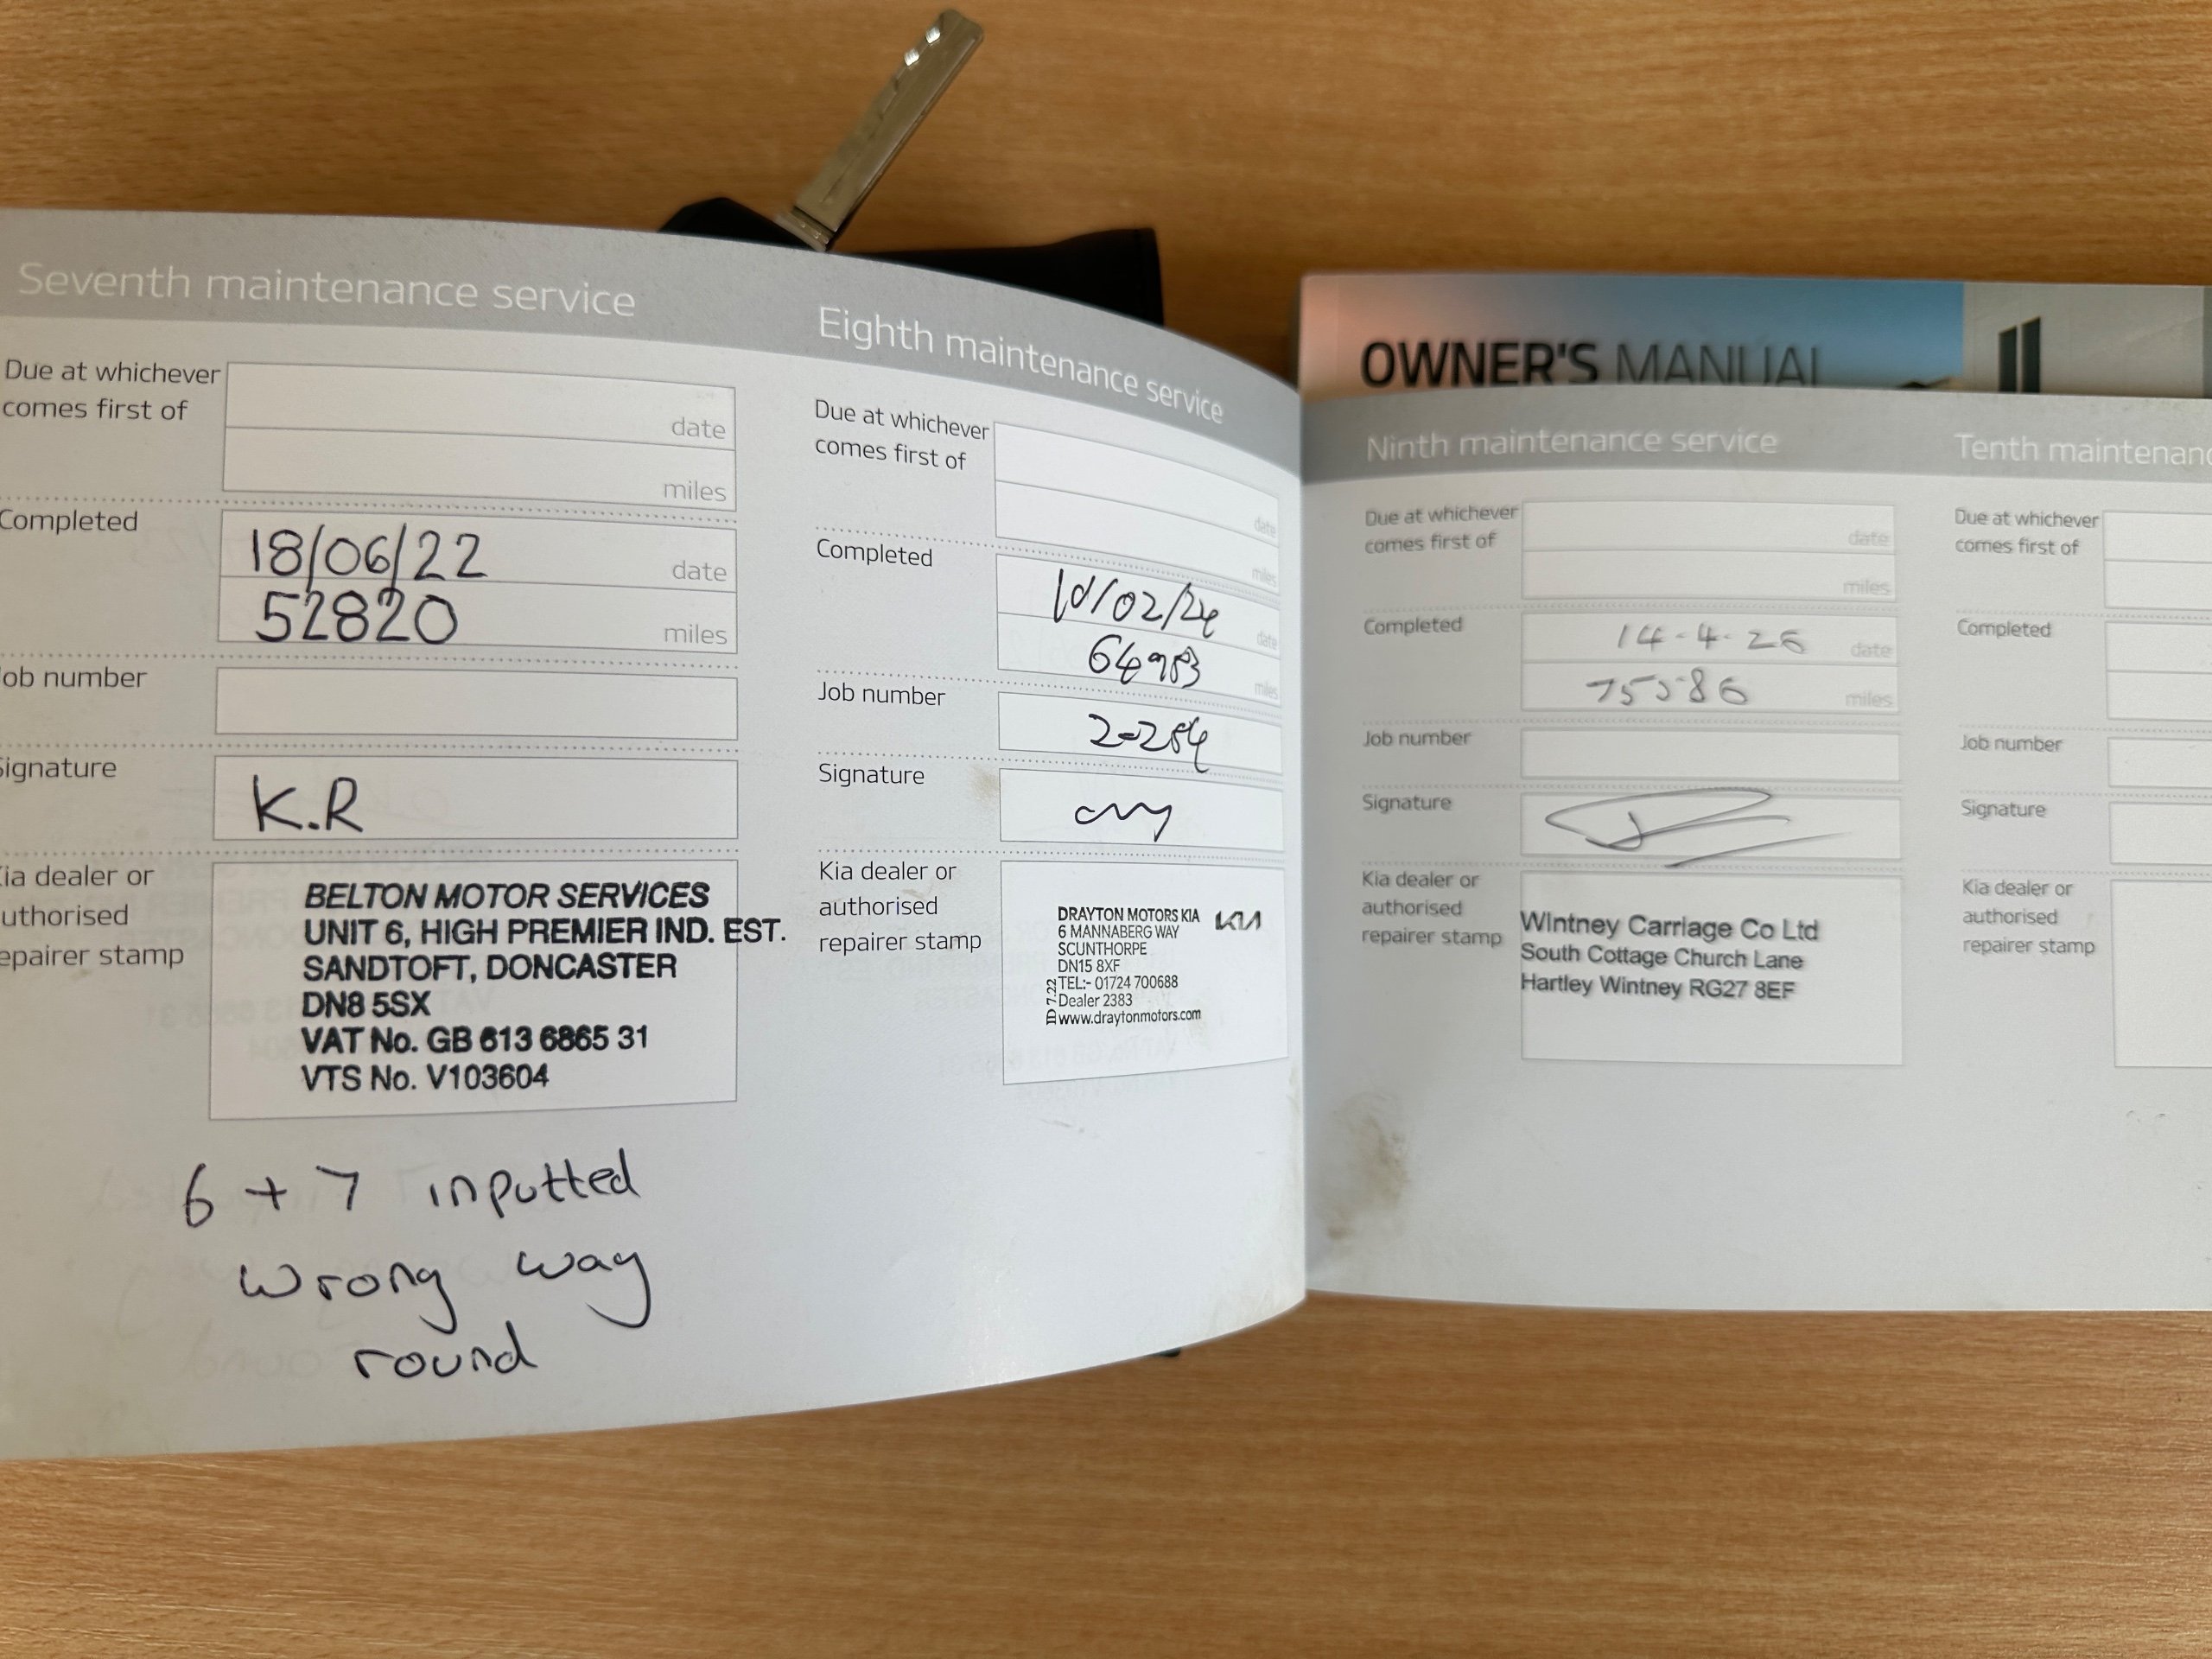 Seventh maintenance service
Due at whichever
comes first of
date
miles
Completed
18/06/22
date
52820
miles
ob number
ignature
K.R
ia dealer or
uthorised
epairer stamp
BELTON MOTOR SERVICES
UNIT 6, HIGH PREMIER IND. EST.
SANDTOFT, DONCASTER
DN8 5SX
VAT No. GB 613 6865 31
VTS No. V103604
6 + 7 inputted
wrong way
round
Eighth maintenance service
Due at whichever
comes first of
date
miles
Completed
/02/24
date
64983
miles
Job number
Signature
Kia dealer or
authorised
repairer stamp
DRAYTON MOTORS KIA
KIA
6 MANNABERG WAY
SCUNTHORPE
DN15 8XF
TEL:- 01724 700688
Dealer 2383
www.draytonmotors.com
ID 7.22
OWNER'S MANUAL
Ninth maintenance service
Due at whichever
comes first of
date
miles
Completed
14-4-26
date
75586
miles
Job number
Signature
Kia dealer or
authorised
repairer stamp
Wintney Carriage Co Ltd
South Cottage Church Lane
Hartley Wintney RG27 8EF
Tenth maintenanc
Due at whichever
comes first of
Completed
Job number
Signature
Kia dealer or
authorised
repairer stamp